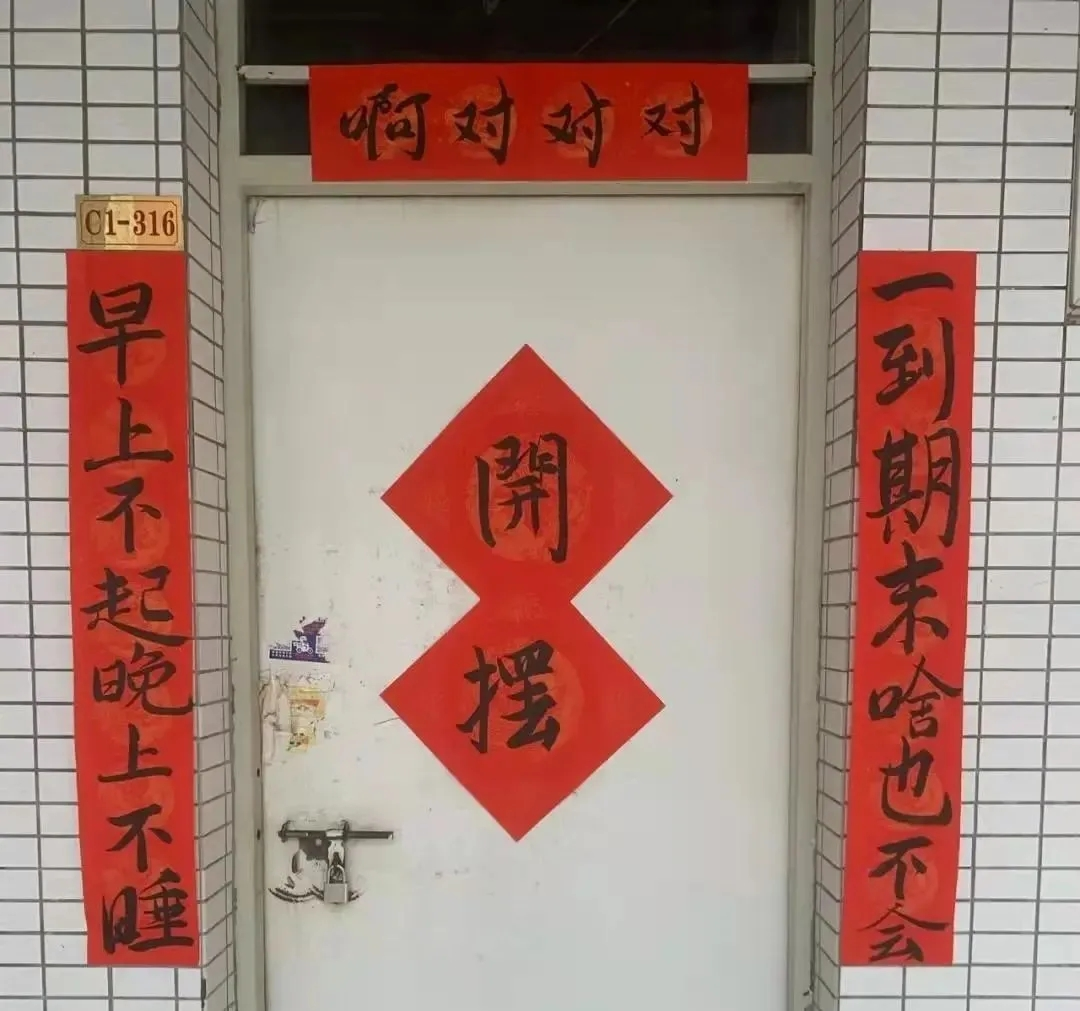 啊对对对
C1-316
早上不起晚上不睡
開摆
一到期末啥也不会